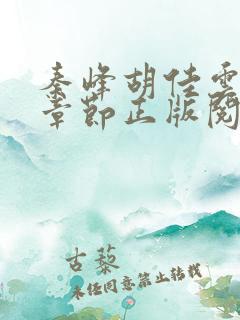 秦峰胡佳雲
章節正版閱
古藜
未经同意禁止转载